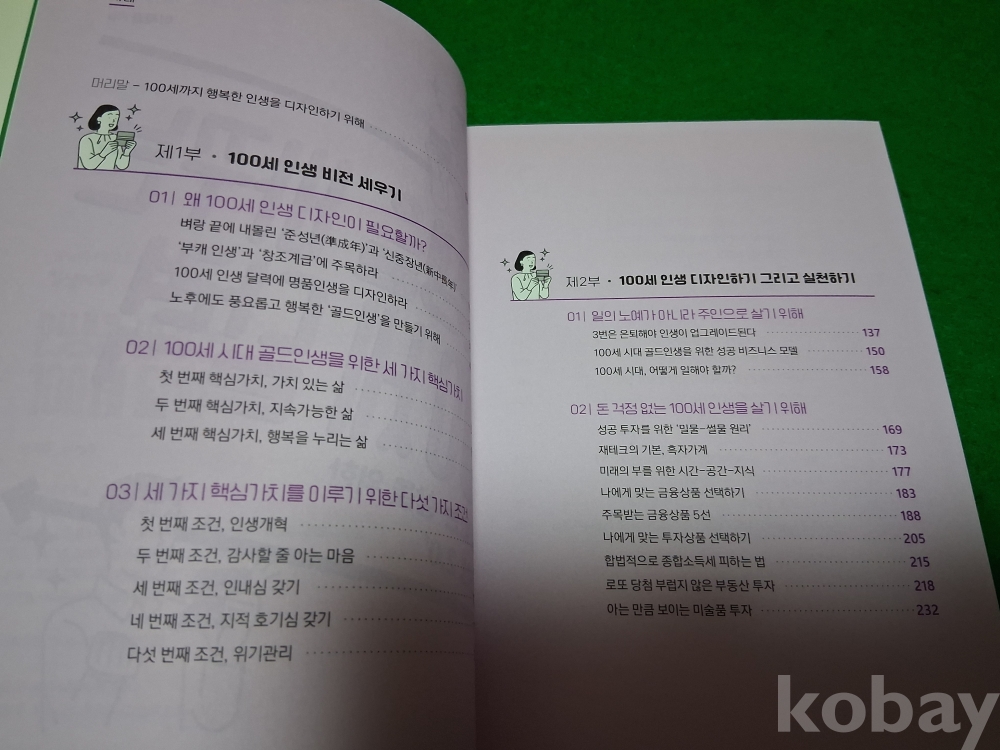 머리말 - 100세까지 행복한 인생을 디자인하기 위해
제1부 · 100세 인생 비전 세우기
01 | 왜 100세 인생 디자인이 필요할까?
벼랑 끝에 내몰린 '준성년(準成年)'과 '신중장년(新中長年)'
'부캐 인생'과 '창조계급'에 주목하라
100세 인생 달력에 명품인생을 디자인하라
노후에도 풍요롭고 행복한 '골드인생'을 만들기 위해
02 | 100세 시대 골드인생을 위한 세 가지 핵심가치
첫 번째 핵심가치, 가치 있는 삶
두 번째 핵심가치, 지속가능한 삶
세 번째 핵심가치, 행복을 누리는 삶
03 | 세 가지 핵심가치를 이루기 위한 다섯 가지 조건
첫 번째 조건, 인생개혁
두 번째 조건, 감사할 줄 아는 마음
세 번째 조건, 인내심 갖기
네 번째 조건, 지적 호기심 갖기
다섯 번째 조건, 위기관리
제2부 · 100세 인생 디자인하기 그리고 실천하기
01 | 일의 노예가 아니라 주인으로 살기 위해
3번은 은퇴해야 인생이 업그레이드된다 137
100세 시대 골드인생을 위한 성공 비즈니스 모델 150
100세 시대, 어떻게 일해야 할까? 158
02 | 돈 걱정 없는 100세 인생을 살기 위해
성공 투자를 위한 '밀물-썰물 원리' 169
재테크의 기본, 흑자가계 173
미래의 부를 위한 시간-공간-지식 177
나에게 맞는 금융상품 선택하기 183
주목받는 금융상품 5선 188
나에게 맞는 투자상품 선택하기 205
합법적으로 종합소득세 피하는 법 215
로또 당첨 부럽지 않은 부동산 투자 218
아는 만큼 보이는 미술품 투자 232
kobay